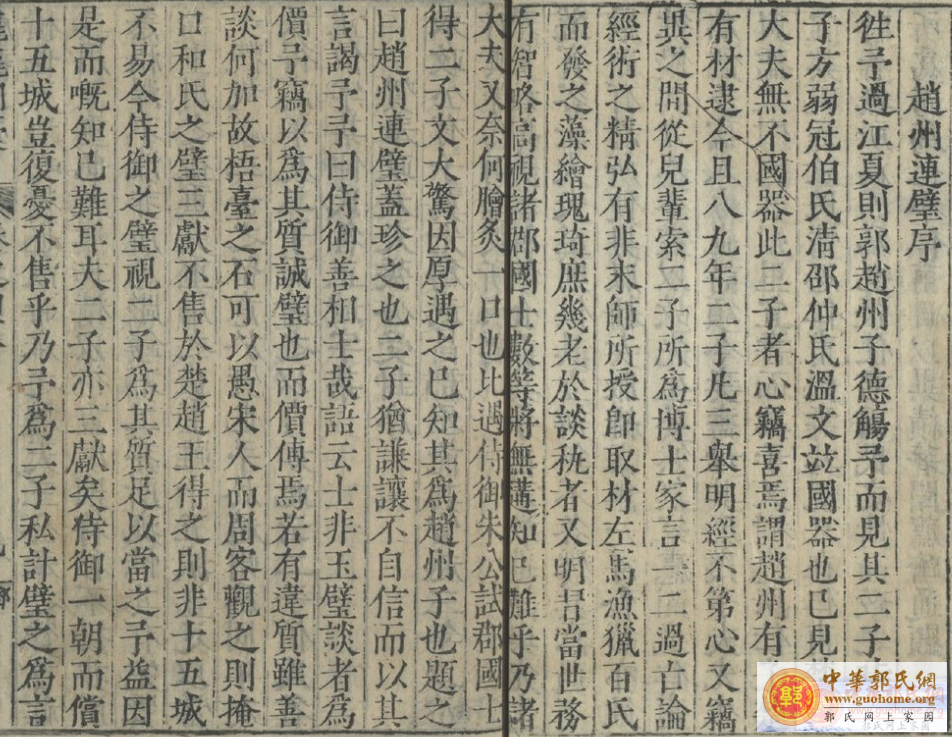 趙州連璧序
徃予過江夏則郭趙州子德觴予而見其二子
子方弱冠伯氏淸邵仲氏溫文竝國器也已見
大夫無不國器此二子者心竊喜焉謂趙州有
有材逮今且八九年二子凡三舉明經不第心又竊
異之間從兒輩索二子所爲博士家言一二過古論
經術之精弘有非末師所授卽取材左馬漁獵百氏
而發之藻繪瑰琦庶幾老於談秇者又明習當世務
有智略高視諸郡國士數等將無遘知已難乎乃諸
大夫又奈何膾炙一口也比遇侍御朱公試郡國士
得二子文大驚因厚遇之已知其爲趙州子也題之
曰趙州連璧蓋珍之也二子猶謙讓不自信而以其
言謁予予曰侍御善相士哉語云士非玉璧談者爲
價予竊以爲其質誠璧也而價傳焉若有違質雖善
談何加故梧臺之石可以愚宋人而周客觀之則掩
口和氏之璧三獻不售於楚趙王得之則非十五城
不易今侍御之璧視二子爲其質足以當之予益因
是而嘅知已難耳夫二子亦三獻矣侍御一朝而償
十五城豈復憂不售乎乃予爲二子私計璧之爲言
中華郭氏網
www.guohome.org
郭氏网上家园